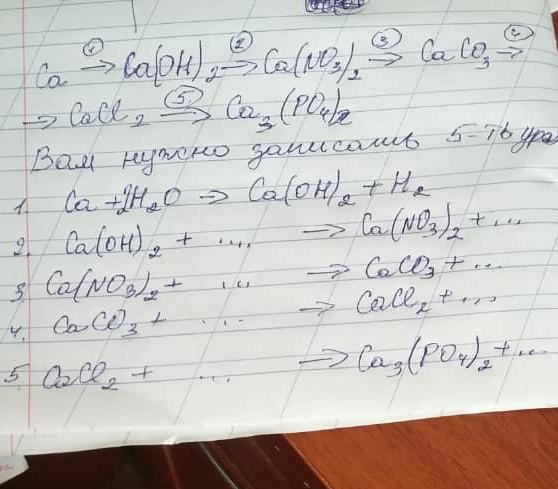 Ca ①→ Ca(OH)₂ ②→ Ca(NO₃)₂ ③→ CaCO₃ ④→
→ CaCl₂ ⑤→ Ca₃(PO₄)₂
Вам нужно записать 5-ть ура
1. Ca + 2H₂O → Ca(OH)₂ + H₂
2. Ca(OH)₂ + .... → Ca(NO₃)₂ + ...
3. Ca(NO₃)₂ + ... → CaCO₃ + ...
4. CaCO₃ + ... → CaCl₂ + ...
5. CaCl₂ + ... → Ca₃(PO₄)₂ + ...